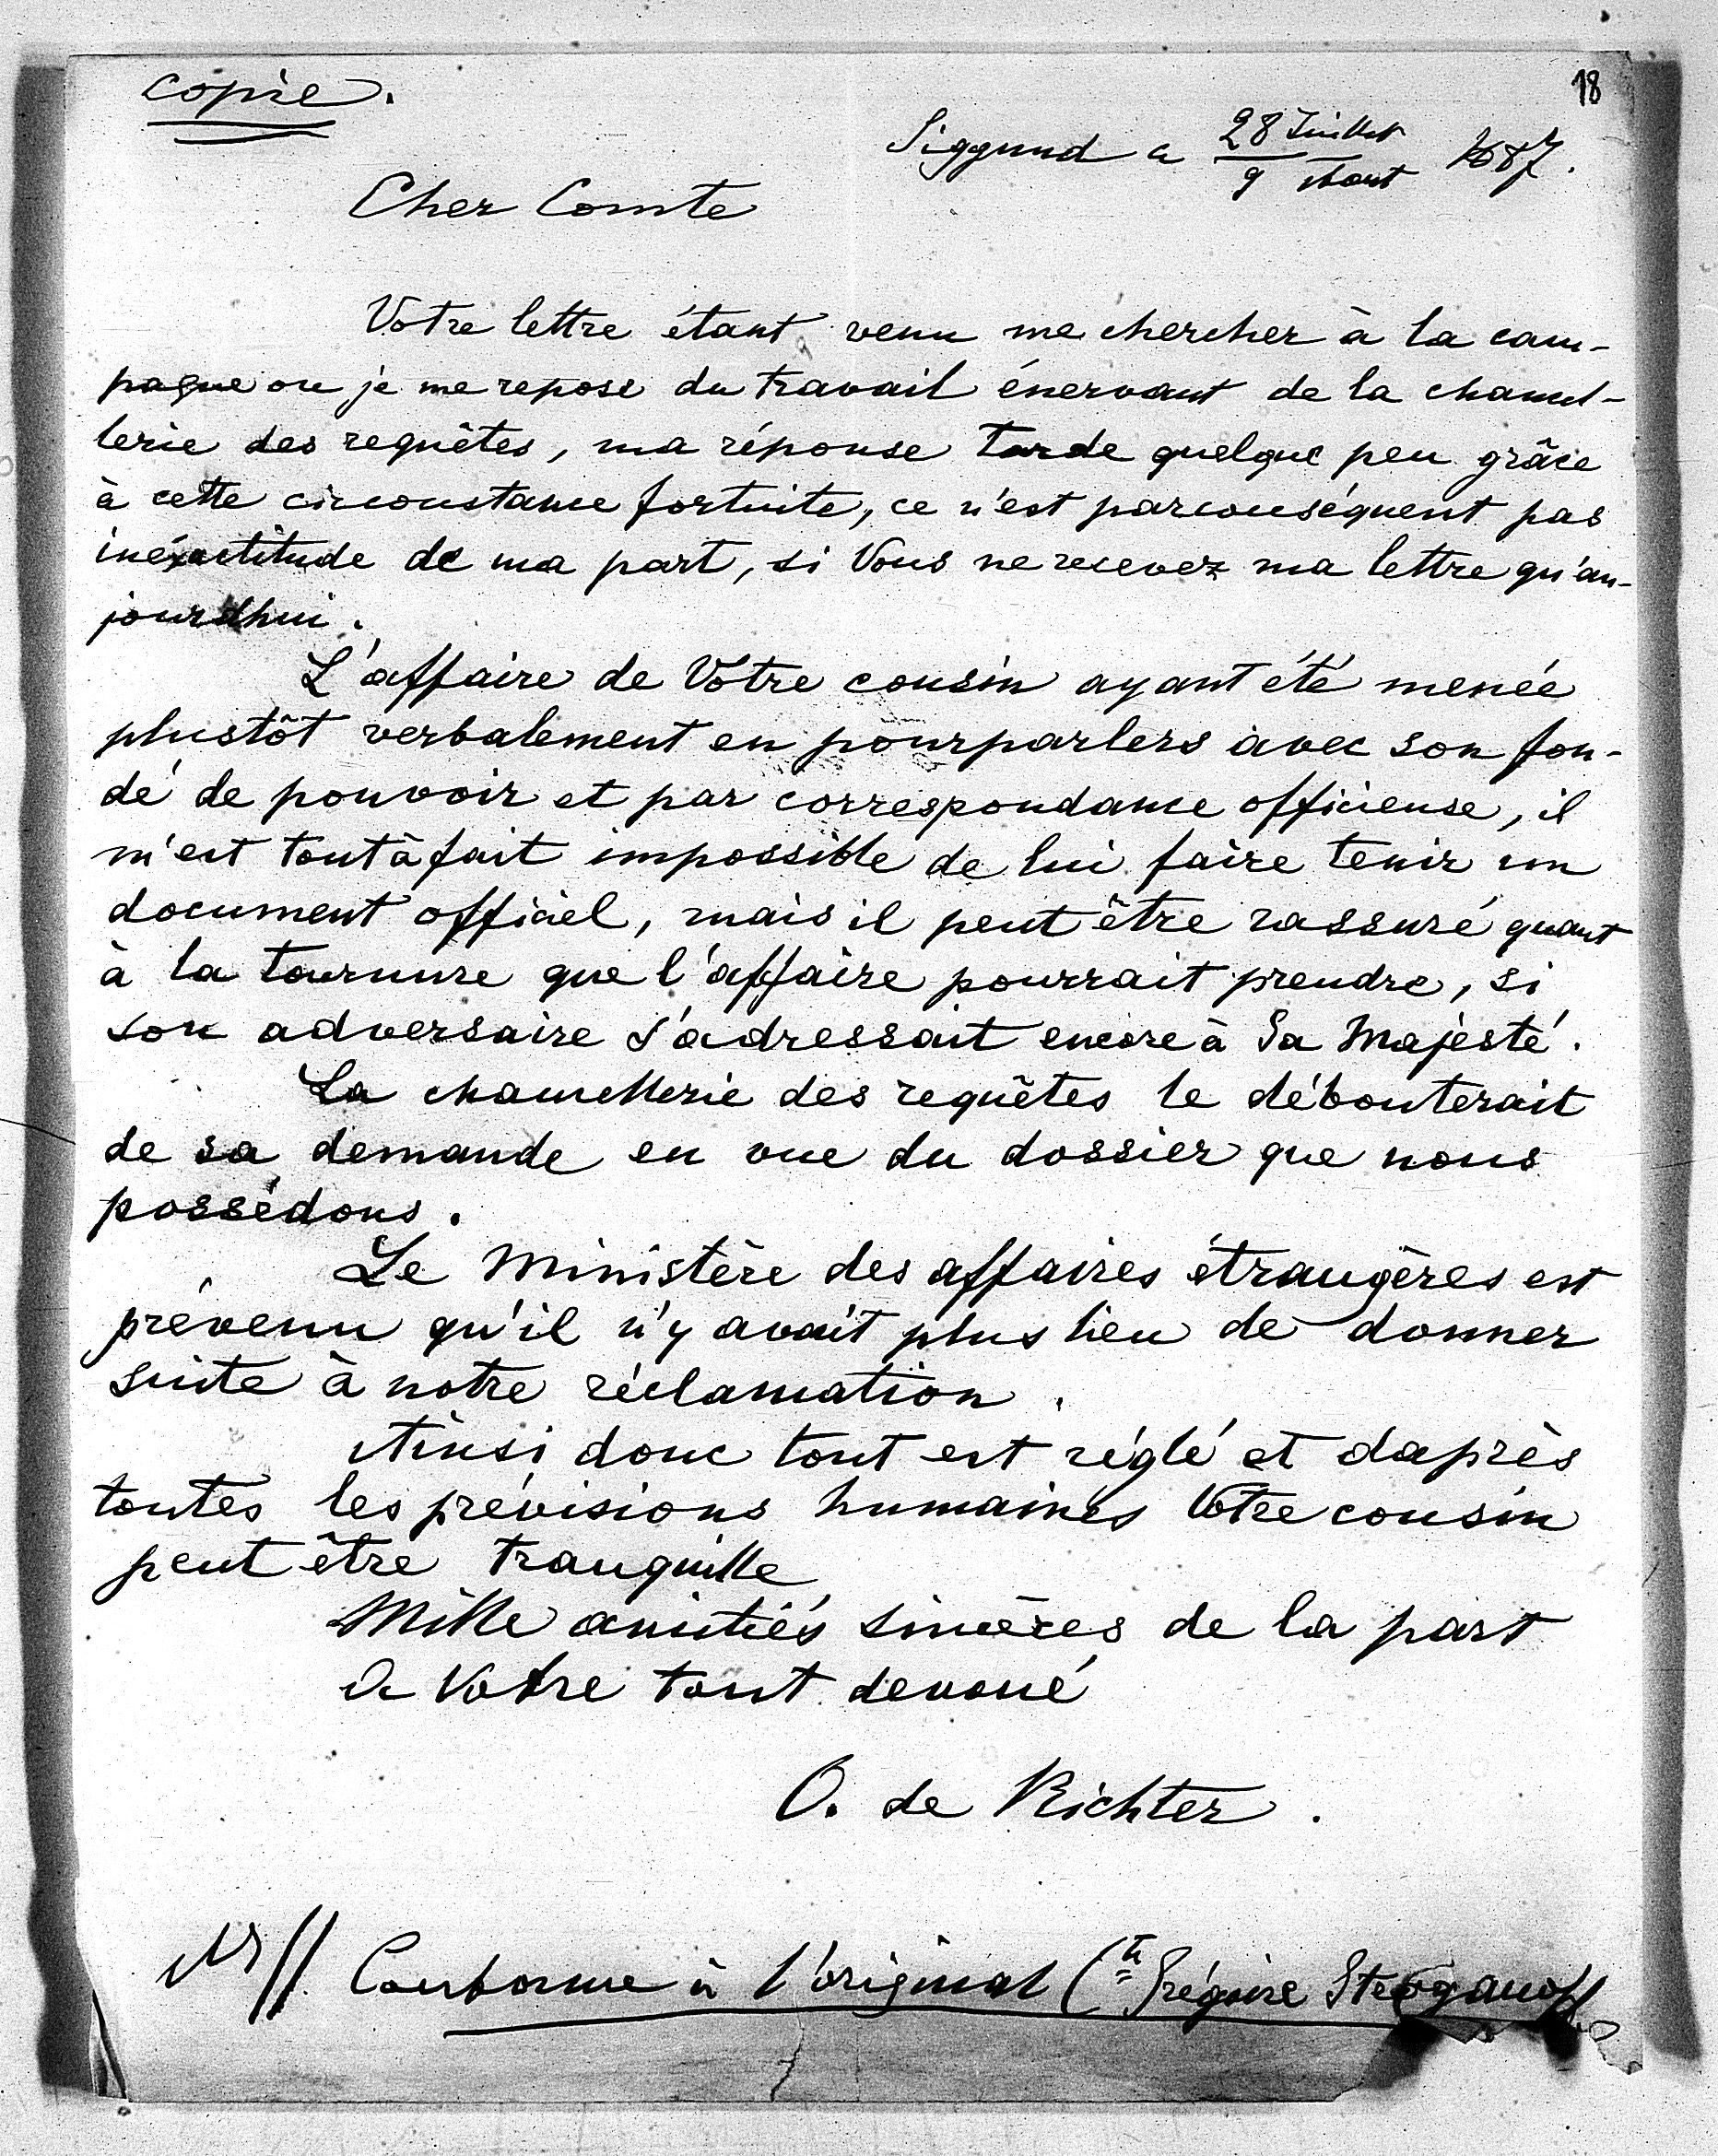 copie.
18
Siggund a 28 Juillet / 9 Aout 1887.
Cher Comte
Votre lettre étant venu me chercher à la cam-
pagne ou je me repose du travail énervant de la chancel-
lerie des requêtes, ma réponse tarde quelque peu grâce
à cette circonstance fortuite, ce n'est parconséquent pas
inéxactitude de ma part, si Vous ne recevez ma lettre qu'au-
jourdhui.
L'affaire de Votre cousin ayant été menée
plustôt verbalement en pourparlers avec son fon-
dé de pouvoir et par correspondance officieuse, il
m'est tout à fait impossible de lui faire tenir un
document officiel, mais il peut être rassuré quant
à la tournure que l'affaire pourrait prendre, si
son adversaire s'adressait encore à Sa Majesté.
La chancellerie des requêtes le débouterait
de sa demande en vue du dossier que nous
possédons.
Le Ministère des affaires étrangères est
prévenu qu'il n'y avait plus lieu de donner
suite à notre réclamation.
Ainsi donc tout est réglé et daprès
toutes les prévisions humaines Votre cousin
peut être tranquille
Mille amitiés sincères de la part
de Votre tout devoué
O. de Richter.
Conforme à l'original Cte Grégoire Stroganoff